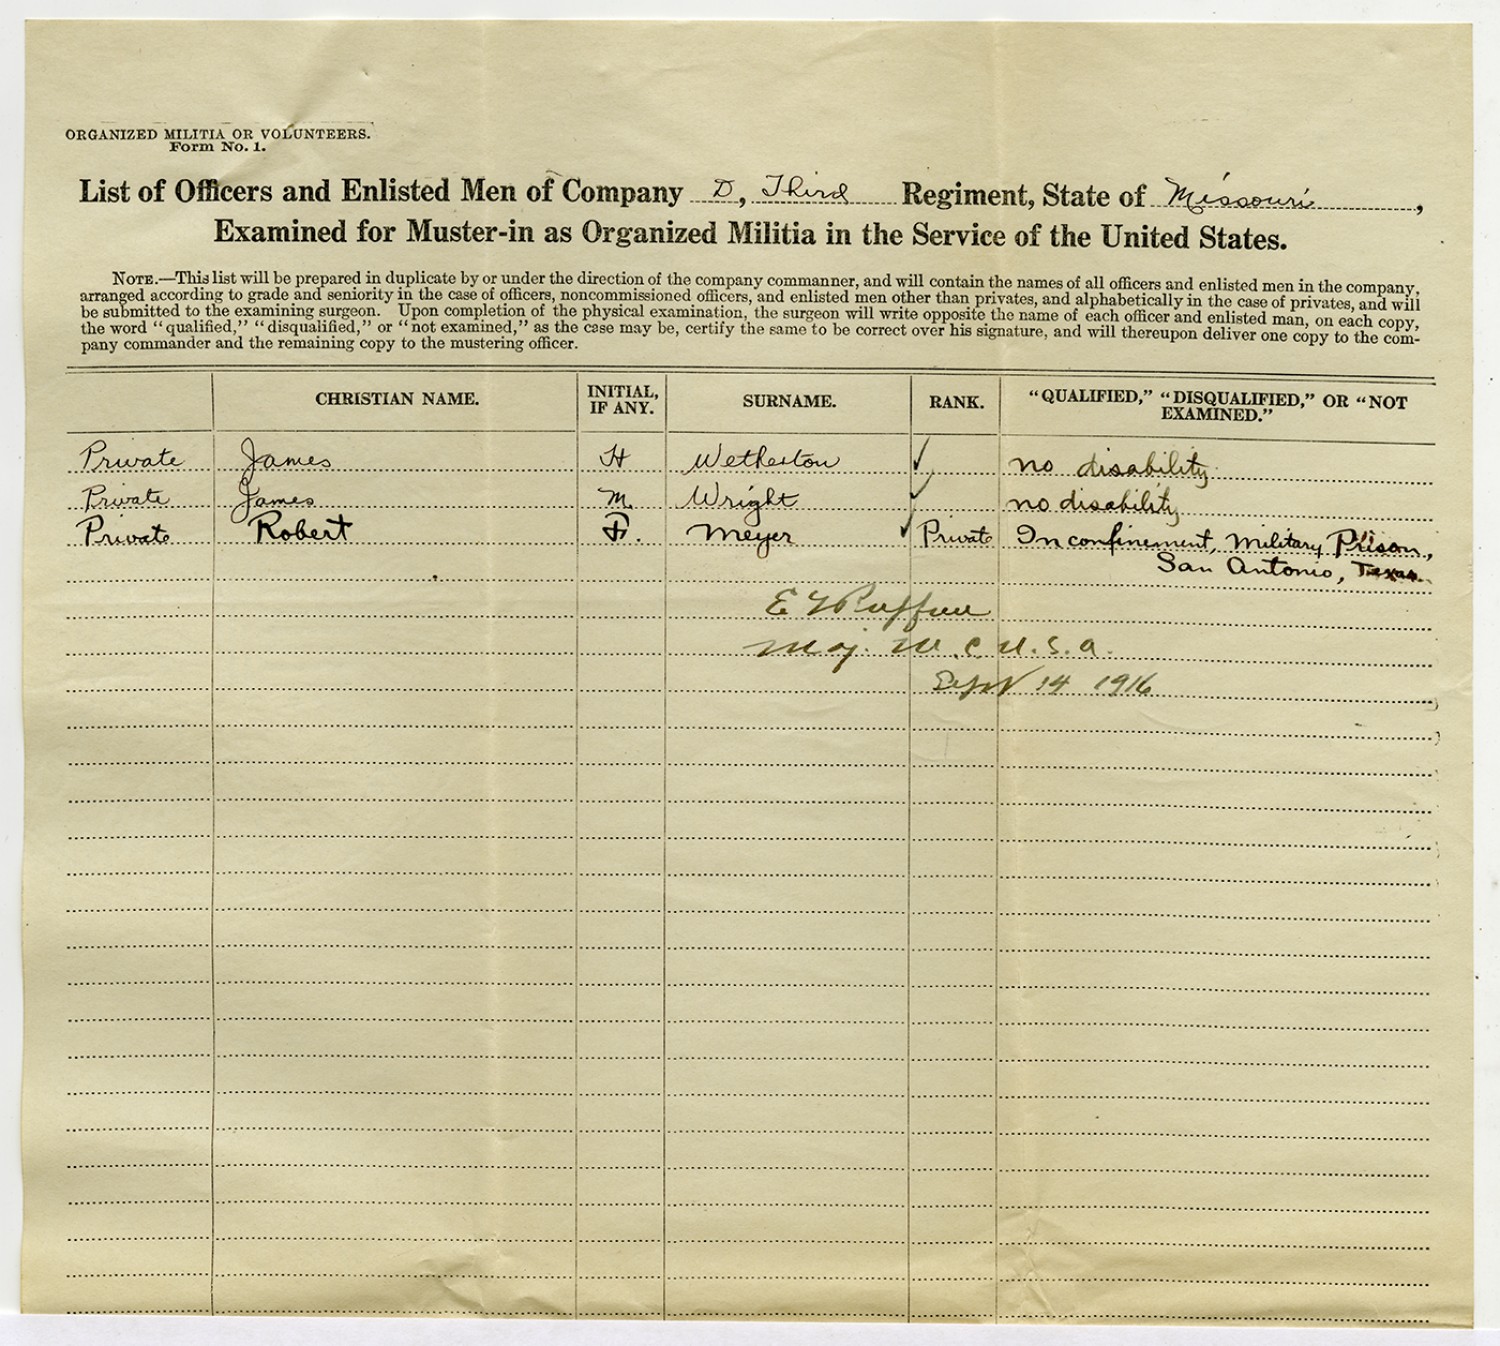 ORGANIZED MILITIA OR VOLUNTEERS.
Form No. 1.
List of Officers and Enlisted Men of Company D, Third Regiment, State of Missouri,
Examined for Muster-in as Organized Militia in the Service of the United States.
NOTE.—This list will be prepared in duplicate by or under the direction of the company commanner, and will contain the names of all officers and enlisted men in the company,
arranged according to grade and seniority in the case of officers, noncommissioned officers, and enlisted men other than privates, and alphabetically in the case of privates, and will
be submitted to the examining surgeon. Upon completion of the physical examination, the surgeon will write opposite the name of each officer and enlisted man, on each copy,
the word "qualified," "disqualified," or "not examined," as the case may be, certify the same to be correct over his signature, and will thereupon deliver one copy to the com-
pany commander and the remaining copy to the mustering officer.
CHRISTIAN NAME. INITIAL, IF ANY. SURNAME. RANK. "QUALIFIED," "DISQUALIFIED," OR "NOT EXAMINED."
Private James H Wetherton ✓ no disability
Private James M. Wright ✓ no disability
Private Robert F. Meyer ✓ Private In confinement, Military Prison,
San Antonio, Texas.
E
Maj. M.C. U.S.A.
Sept 14 1916